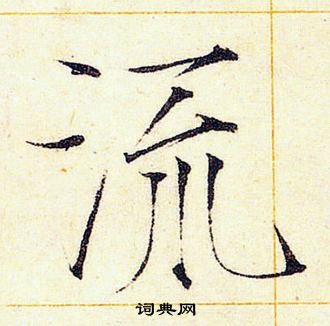 流
词典网